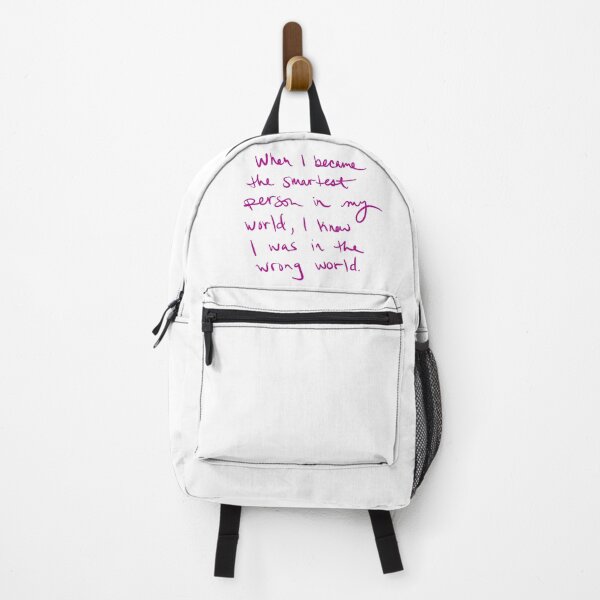 When I became
the smartest
person in my
world, I knew
I was in the
wrong world.